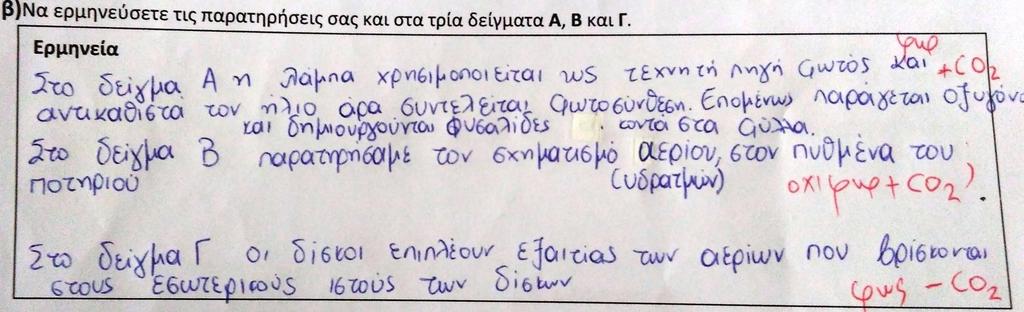 β)Να ερμηνεύσετε τις παρατηρήσεις σας και στα τρία δείγματα Α, Β και Γ.
Ερμηνεία
φως
Στο δείγμα Α η λάμπα χρησιμοποιείται ως τεχνητή πηγή φωτός και +CO2
αντικαθιστά τον ήλιο άρα συντελείται φωτοσύνθεση. Επομένως παράγεται οξυγόνο
και δημιουργούνται φυσαλίδες κοντά στα φύλλα.
Στο δείγμα Β παρατηρήσαμε τον σχηματισμό αερίου, στον πυθμένα του
ποτηριού (υδρατμών) οχι φως + CO2).
Στο δείγμα Γ οι δίσκοι επιπλέουν εξαιτίας των αερίων που βρίσκονται
στους εσωτερικούς ιστούς των δίσκων
φως - CO2